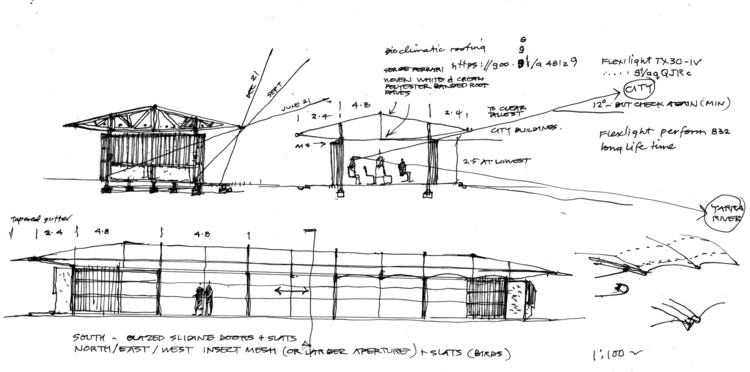 Bioclimatic roofing
https://goo.gl/a48iz9
SERGE FERRARI
WOVEN WHITE & CREAM
POLYESTER BANDED ROOF
EAVES
Flexilight TX30-IV
CITY
12° - BUT CHECK AGAIN (MIN)
Flexlight perform 832
long life time
DEC 21
SEPT
JUNE 21
2.4
4.8
2.4
TO CLEAR
TALLEST
CITY BUILDINGS.
2.5 AT LOWEST
YARRA
RIVER
Tapered gutter
2.4
4.8
4.8
SOUTH - GLAZED SLIDING DOORS + SLATS
NORTH/EAST/WEST INSECT MESH (OR LARGER APERTURE) + SLATS (BIRDS)
1:100